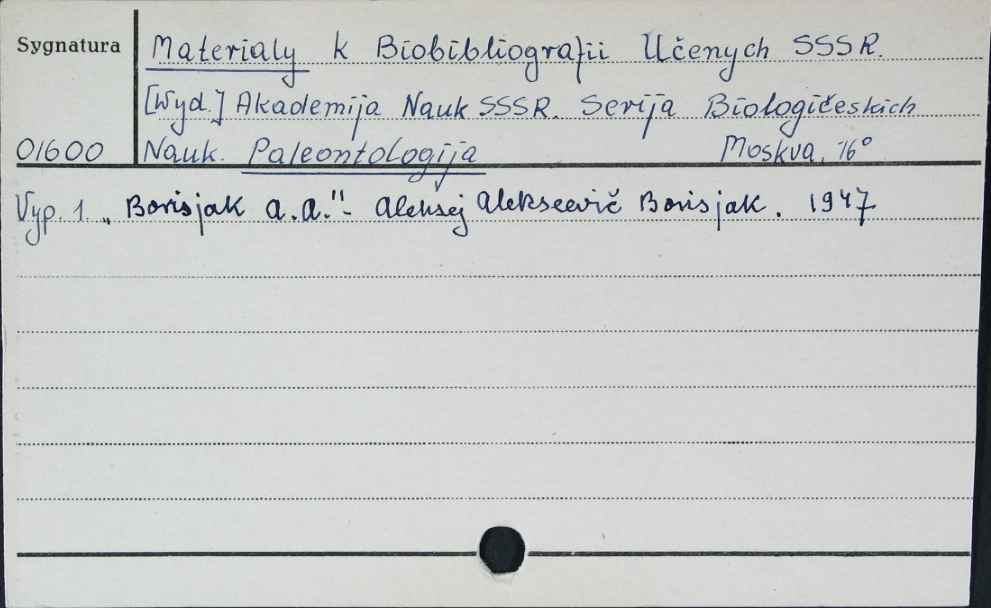 Sygnatura
Materialy k Biobibliografii Učenych SSSR.
[Wyd.] Akademija Nauk SSSR. Serija Biologičeskich
01600
Nauk. Paleontologija Moskva, 16°
Vyp. 1. „Borisjak A.A." - Aleksej Alekseevič Borisjak. 1947